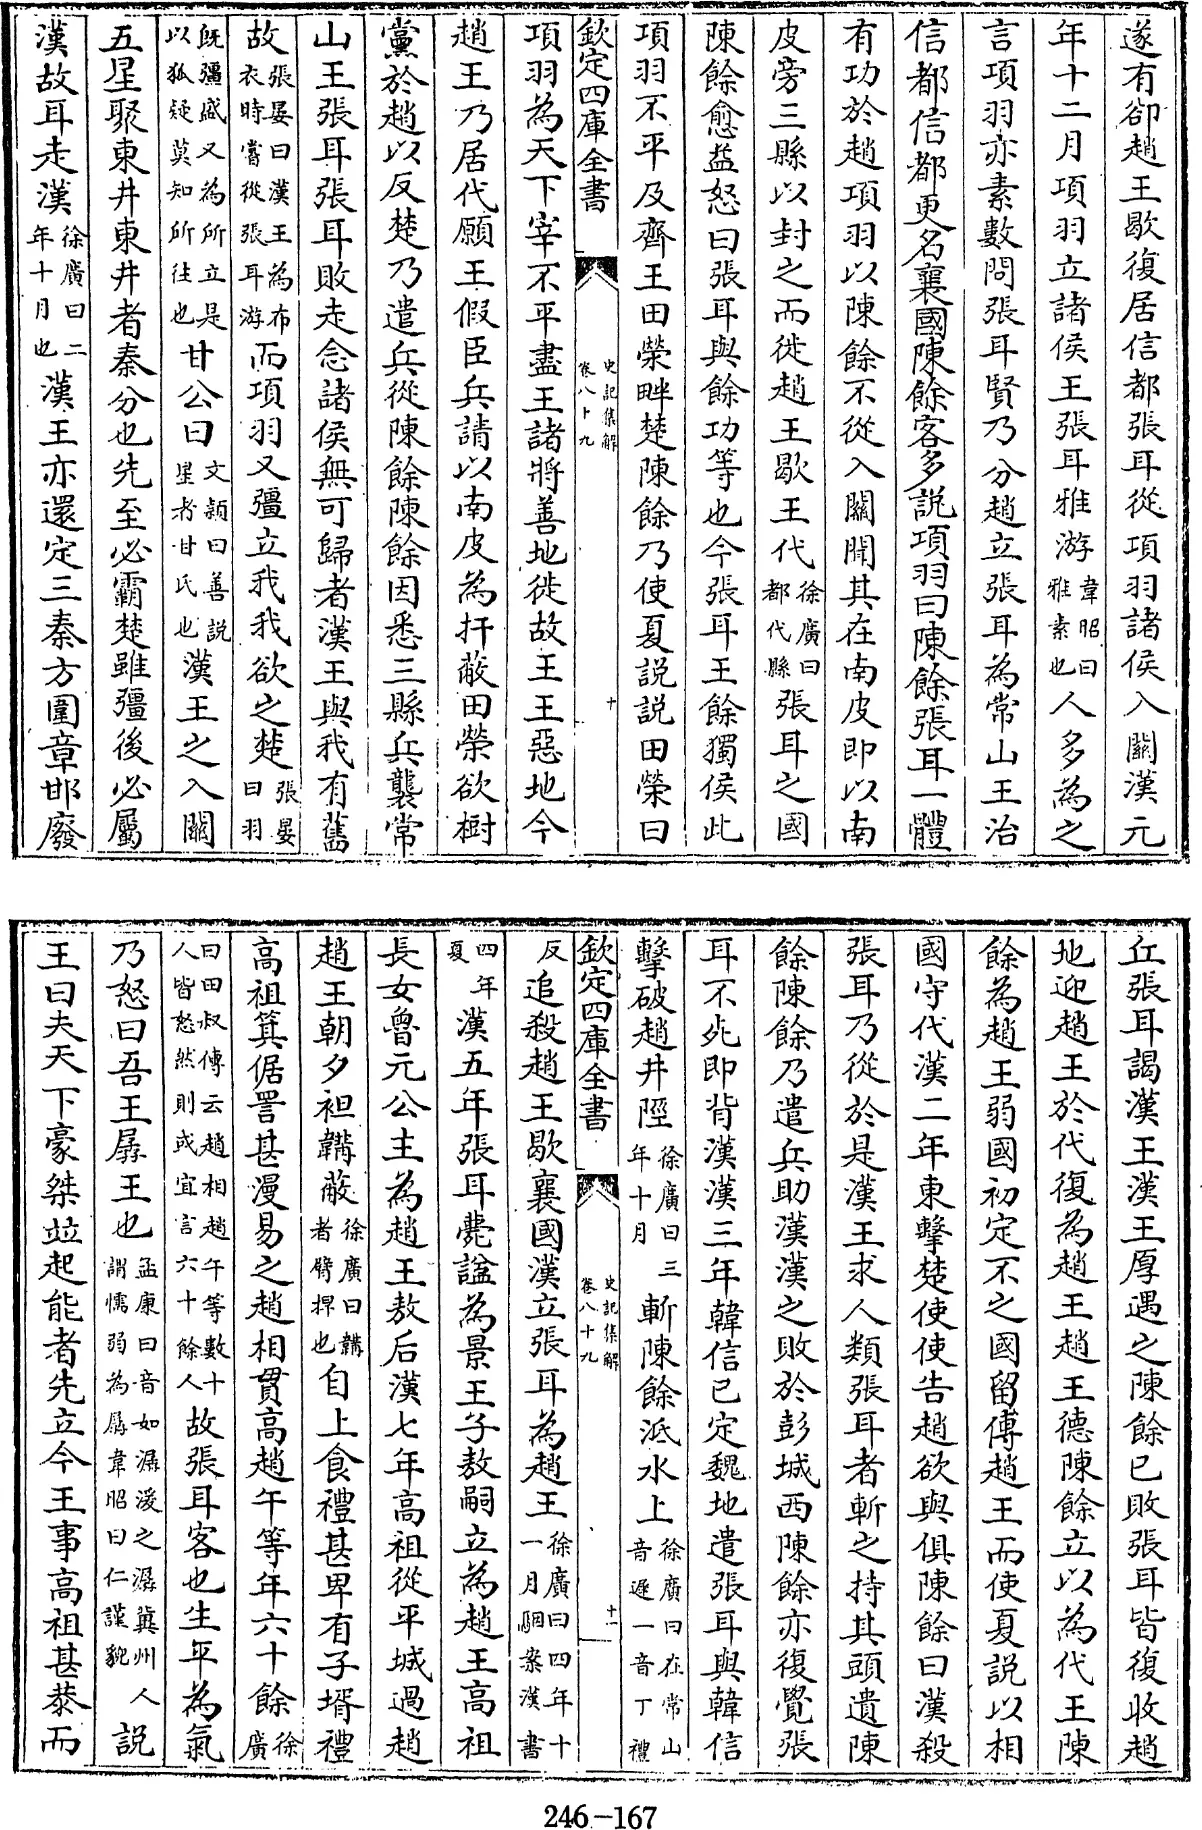 遂有卻趙王歇復居信都張耳從項羽諸侯入關漢元
年十二月項羽立諸侯王張耳雅游韋昭曰雅素也人多為之
言項羽亦素數聞張耳賢乃分趙立張耳為常山王治
信都信都更名襄國陳餘客多說項羽曰陳餘張耳一體
有功於趙項羽以陳餘不從入關聞其在南皮即以南
皮旁三縣以封之而徙趙王歇王代徐廣曰都代縣張耳之國
陳餘愈益怒曰張耳與餘功等也今張耳王餘獨侯此
項羽不平及齊王田榮畔楚陳餘乃使夏說說田榮曰
欽定四庫全書 史記集解卷八十九 十
項羽為天下宰不平盡王諸將善地徙故王王惡地今
趙王乃居代願王假臣兵請以南皮為扞蔽田榮欲樹
黨於趙以反楚乃遣兵從陳餘陳餘因悉三縣兵襲常
山王張耳張耳敗走念諸侯無可歸者漢王與我有舊
故張晏曰漢王為布衣時嘗從張耳游而項羽又彊立我我欲之楚張晏曰羽
既彊盛又為所立是以狐疑莫知所往也甘公曰文穎曰善說星者甘氏也漢王之入關
五星聚東井東井者秦分也先至必霸楚雖彊後必屬
漢故耳走漢徐廣曰二年十月也漢王亦還定三秦方圍章邯廢
丘張耳謁漢王漢王厚遇之陳餘已敗張耳皆復收趙
地迎趙王於代復為趙王趙王德陳餘立以為代王陳
餘為趙王弱國初定不之國留傅趙王而使夏說以相
國守代漢二年東擊楚使使告趙欲與俱陳餘曰漢殺
張耳乃從於是漢王求人類張耳者斬之持其頭遺陳
餘陳餘乃遣兵助漢漢之敗於彭城西陳餘亦復覺張
耳不死即背漢漢三年韓信已定魏地遣張耳與韓信
擊破趙井陘徐廣曰三年十月斬陳餘泜水上徐廣曰在常山音遲一音丁禮
欽定四庫全書 史記集解卷八十九 十一
反追殺趙王歇襄國漢立張耳為趙王徐廣曰四年十一月駰案漢書
四年夏漢五年張耳薨諡為景王子敖嗣立為趙王高祖
長女魯元公主為趙王敖后漢七年高祖從平城過趙
趙王朝夕袒韝蔽徐廣曰韝者臂捍也自上食禮甚卑有子壻禮
高祖箕倨詈甚漫易之趙相貫高趙午等年六十餘徐廣
曰田叔傳云趙相趙午等數十人皆怒然則或宜言六十餘人故張耳客也生平為氣
乃怒曰吾王孱王也孟康曰音如潺湲之潺冀州人謂懦弱為孱韋昭曰仁謹貌說
王曰夫天下豪桀竝起能者先立今王事高祖甚恭而
246-167